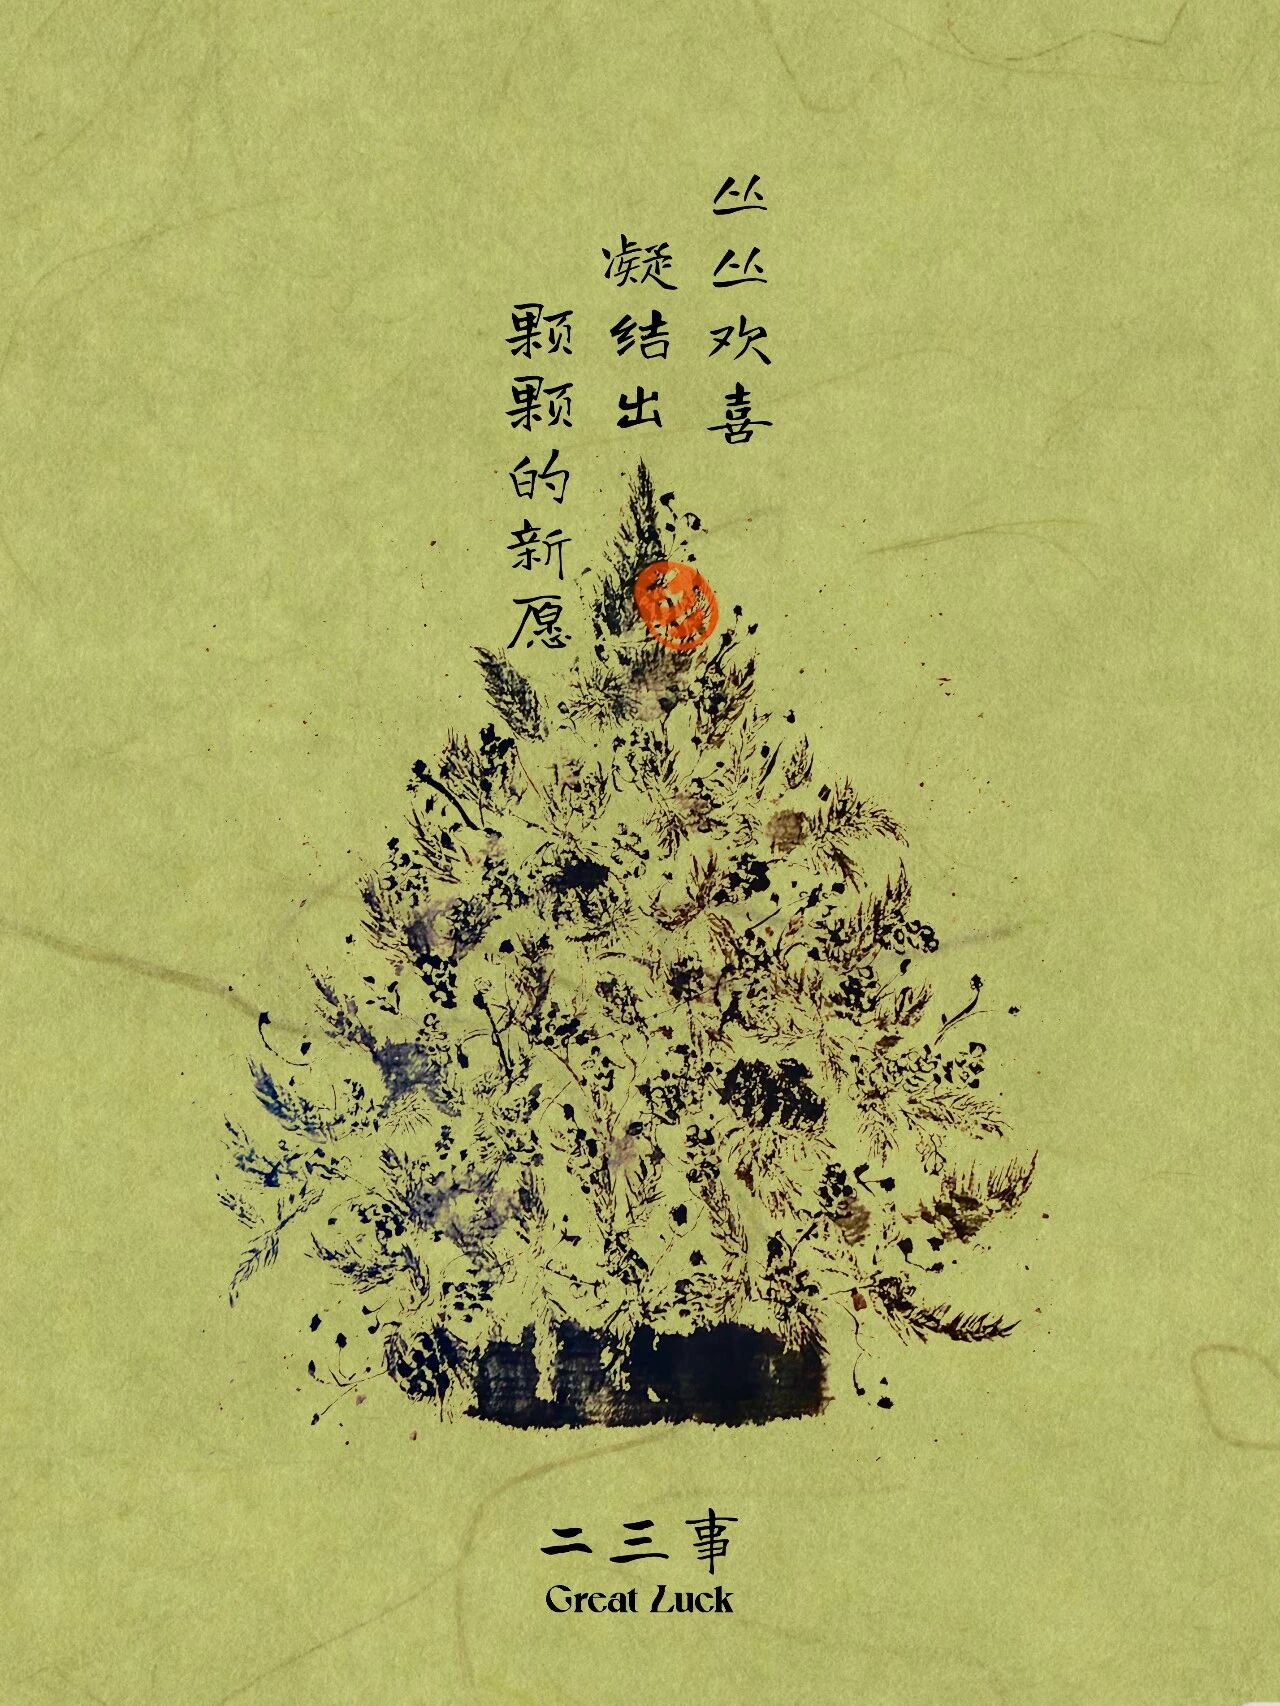 丛丛欢喜
凝结出
颗颗的新愿
二三事
Great Luck